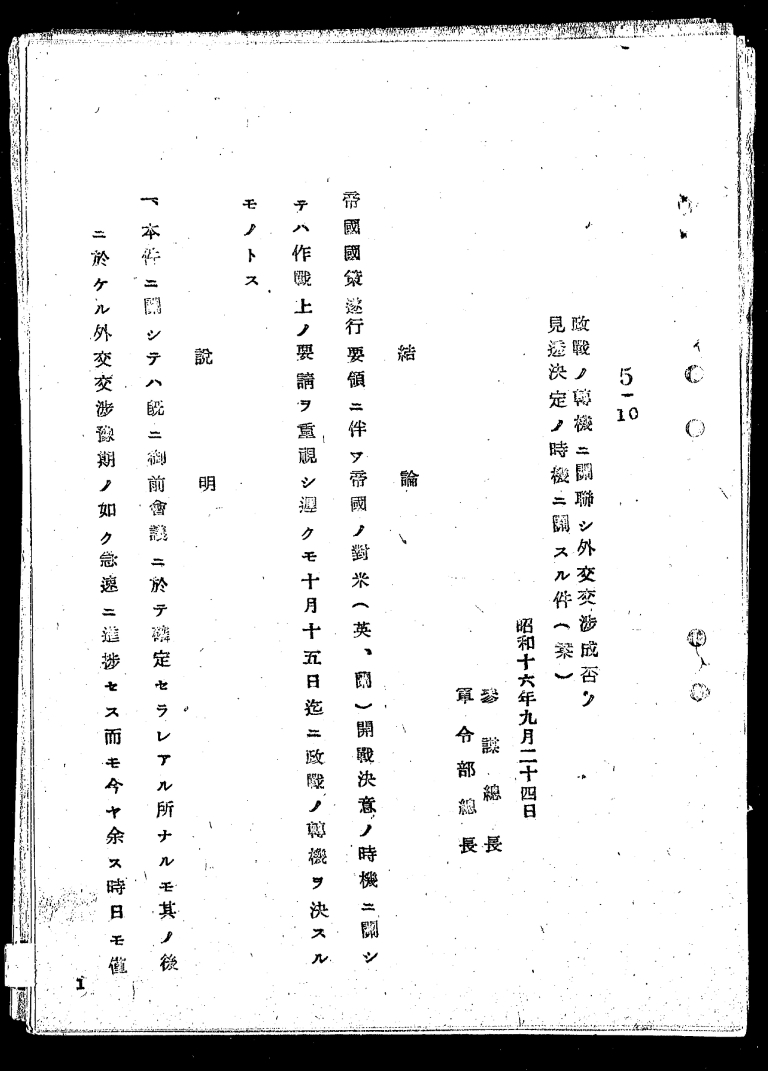 5-10
政戰ノ轉機ニ關聯シ外交交涉成否ノ
見透決定ノ時機ニ關スル件(案)
昭和十六年九月二十四日
參謀總長
軍令部總長
結論
帝國國策遂行要領ニ伴フ帝國ノ對米(英、蘭)開戰決意ノ時機ニ關シ
テハ作戰上ノ要請ヲ重視シ遲クモ十月十五日迄ニ政戰ノ轉機ヲ決スル
モノトス
說明
一、本件ニ關シテハ既ニ御前會議ニ於テ確定セラレアル所ナルモ其ノ後
ニ於ケル外交交涉豫期ノ如ク急速ニ進捗セス而モ今ヤ余ス時日モ僅
1